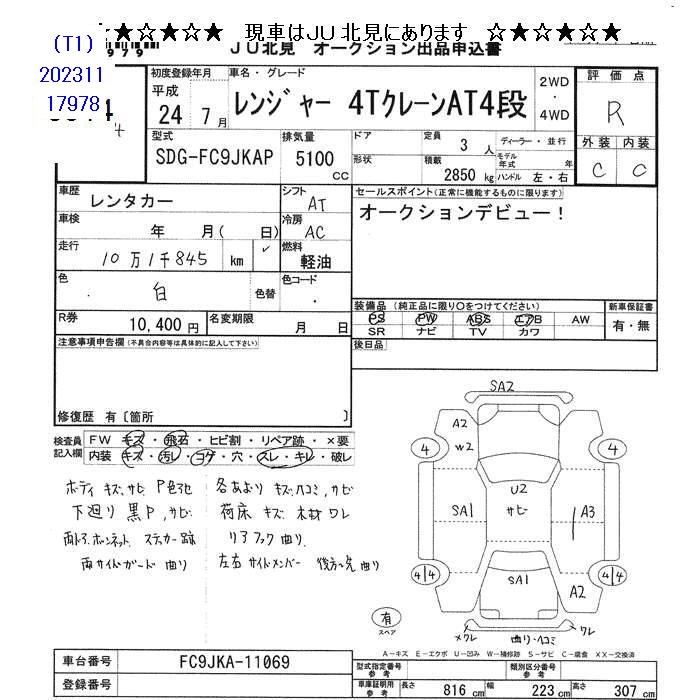 ★☆★☆★ 現車はJU 北見にあります ☆★☆★☆★
(T1)
979
JU北見 オークション出品申込書
202311
17978
4
初度登録年月
平成
24年 7月
車名・グレード
レンジャー 4TクレーンAT4段
2WD
・
4WD
評価点
R
外装 内装
C C
型式
SDG-FC9JKAP
排気量
5100 cc
ドア
形状
定員 3 人
積載 2850 kg
ディーラー・並行
モデル年式 年
ハンドル 左・右
車歴 レンタカー
シフト AT
車検 年 月( 日)
冷房 AC
走行 10万1千845 km
燃料 軽油
色 白 色替
色コード ・
セールスポイント(正常に機能するものに限ります)
オークションデビュー!
R券 10,400 円
名変期限 月 日
装備品 (純正品に限り○をつけてください)
PS PW ABS エアB AW
SR ナビ TV カワ
新車保証書
有・無
後日品
注意事項申告欄(不具合内容等は具体的に記入して下さい)
修復歴 有〔箇所 〕
検査員記入欄
FW キズ・飛石・ヒビ割・リペア跡・×要
内装 キズ・汚レ・コゲ・穴・スレ・キレ・破レ
ボディ キズ、サビ P色ヌケ
下廻り 黒P、サビ
両ドア.ボンネット ステッカー跡
両サイドガード 曲り
各あおり キズ、ヘコミ、サビ
荷床 キズ 木材ワレ
リアフック曲り
左右サイドメンバー 後方先曲り
SA2
A2
W2
4
4
U2
サビ
SA1
A3
SA1
A2
4 4
4 4
有
スペア
メクレ
曲り・ヘコミ
ワレ
A-キズ E-エクボ U-凹み W-補修跡 S-サビ C-腐食 XX-交換済
車台番号 FC9JKA-11069
登録番号
型式指定番号 参考
類別区分番号 参考
車庫証明用 参考
長さ 816 cm
幅 223 cm
高さ 307 cm